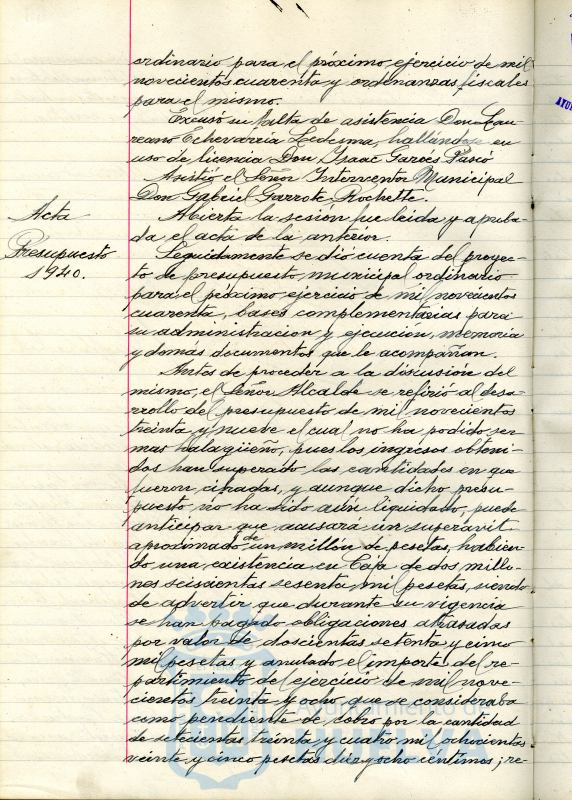 ordinario para el próximo ejercicio de mil
novecientos cuarenta y ordenanzas fiscales
para el mismo.
Excusó su falta de asistencia Don Lau-
reano Echevarría Ledesma, hallándose en
uso de licencia Don Isaac Garcés Pascó
Asistió el Señor Interventor Municipal
Don Gabriel Garrote Rochette.
Acta
Presupuesto
1940.
Abierta la sesión fue leida y aproba-
da el acta de la anterior.
Seguidamente se dió cuenta del proyec-
to de presupuesto municipal ordinario
para el próximo ejercicio de mil novecientos
cuarenta, bases complementarias para
su administracion y ejecución, memoria
y demás documentos que le acompañan.
Antes de proceder a la discusión del
mismo, el Señor Alcalde se refirió al desa-
rrollo del presupuesto de mil novecientos
treinta y nueve el cual no ha podido ser
mas halagüeño, pues los ingresos obteni-
dos han superado las cantidades en que
fueron cifradas, y aunque dicho presu-
puesto no ha sido aún liquidado, puede
anticipar que acusará un superavit
aproximado de un millón de pesetas, habien-
do una existencia en Caja de dos millo-
nes seiscientas sesenta mil pesetas, siendo
de advertir que durante su vigencia
se han pagado obligaciones atrasadas
por valor de doscientas setenta y cinco
mil pesetas y anulado el importe del re-
partimiento de ejercicio de mil nove-
cientos treinta y ocho que se consideraba
como pendiente de cobro por la cantidad
de setecientas treinta y cuatro mil ochocientas
veinte y cinco pesetas diez y ocho centimos; re-
Ayuntamiento de
HUELVA